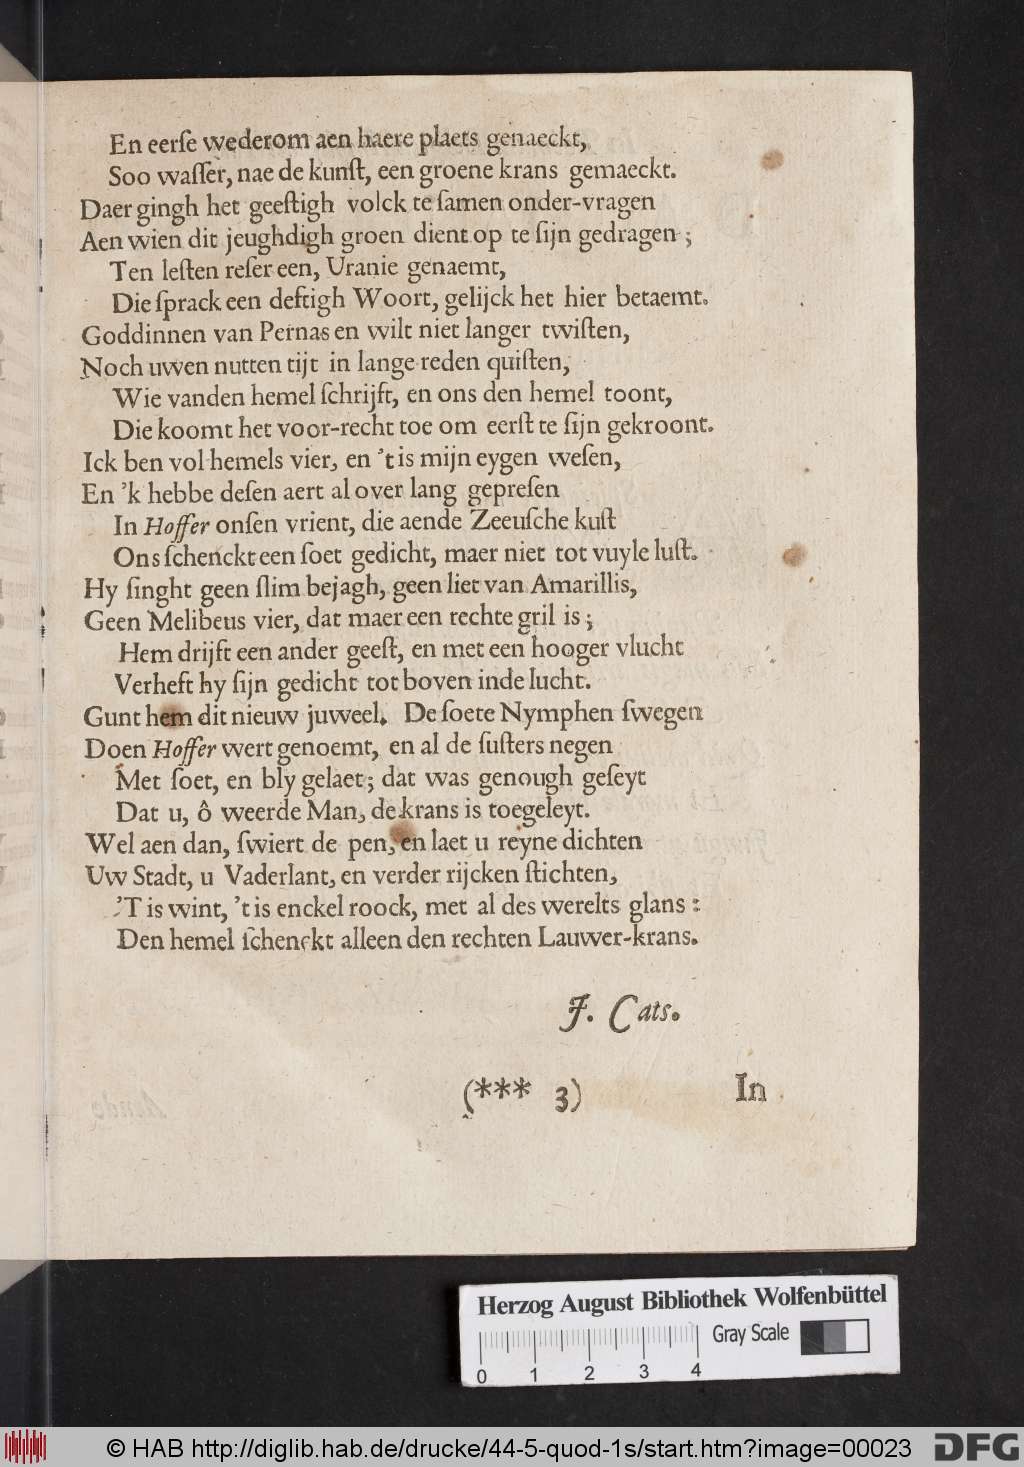 En eerſe wederom aen haere plaets genaeckt,
Soo waſſer, nae de kunſt, een groene krans gemaeckt.
Daer gingh het geeſtigh volck te ſamen onder-vragen
Aen wien dit jeughdigh groen dient op te ſijn gedragen;
Ten leſten reſer een, Uranie genaemt,
Die ſprack een deftigh Woort, gelijck het hier betaemt.
Goddinnen van Pernas en wilt niet langer twiſten,
Noch uwen nutten tijt in lange reden quiſten,
Wie vanden hemel ſchrijft, en ons den hemel toont,
Die koomt het voor-recht toe om eerſt te ſijn gekroont.
Ick ben vol hemels vier, en 't is mijn eygen weſen,
En 'k hebbe deſen aert al over lang gepreſen
In Hoffer onſen vrient, die aende Zeeuſche kuſt
Ons ſchenckt een ſoet gedicht, maer niet tot vuyle luſt.
Hy ſinght geen ſlim bejagh, geen liet van Amarillis,
Geen Melibeus vier, dat maer een rechte gril is;
Hem drijft een ander geeſt, en met een hooger vlucht
Verheft hy ſijn gedicht tot boven inde lucht.
Gunt hem dit nieuw juweel. De ſoete Nymphen ſwegen
Doen Hoffer wert genoemt, en al de ſuſters negen
Met ſoet, en bly gelaet; dat was genough geſeyt
Dat u, ô weerde Man, de krans is toegeleyt.
Wel aen dan, ſwiert de pen, en laet u reyne dichten
Uw Stadt, u Vaderlant, en verder rijcken ſtichten,
'T is wint, 't is enckel roock, met al des werelts glans:
Den hemel ſchenckt alleen den rechten Lauwer-krans.
J. Cats.
(*** 3) In
Herzog August Bibliothek Wolfenbüttel
Gray Scale
0 1 2 3 4
© HAB http://diglib.hab.de/drucke/44-5-quod-1s/start.htm?image=00023 DFG